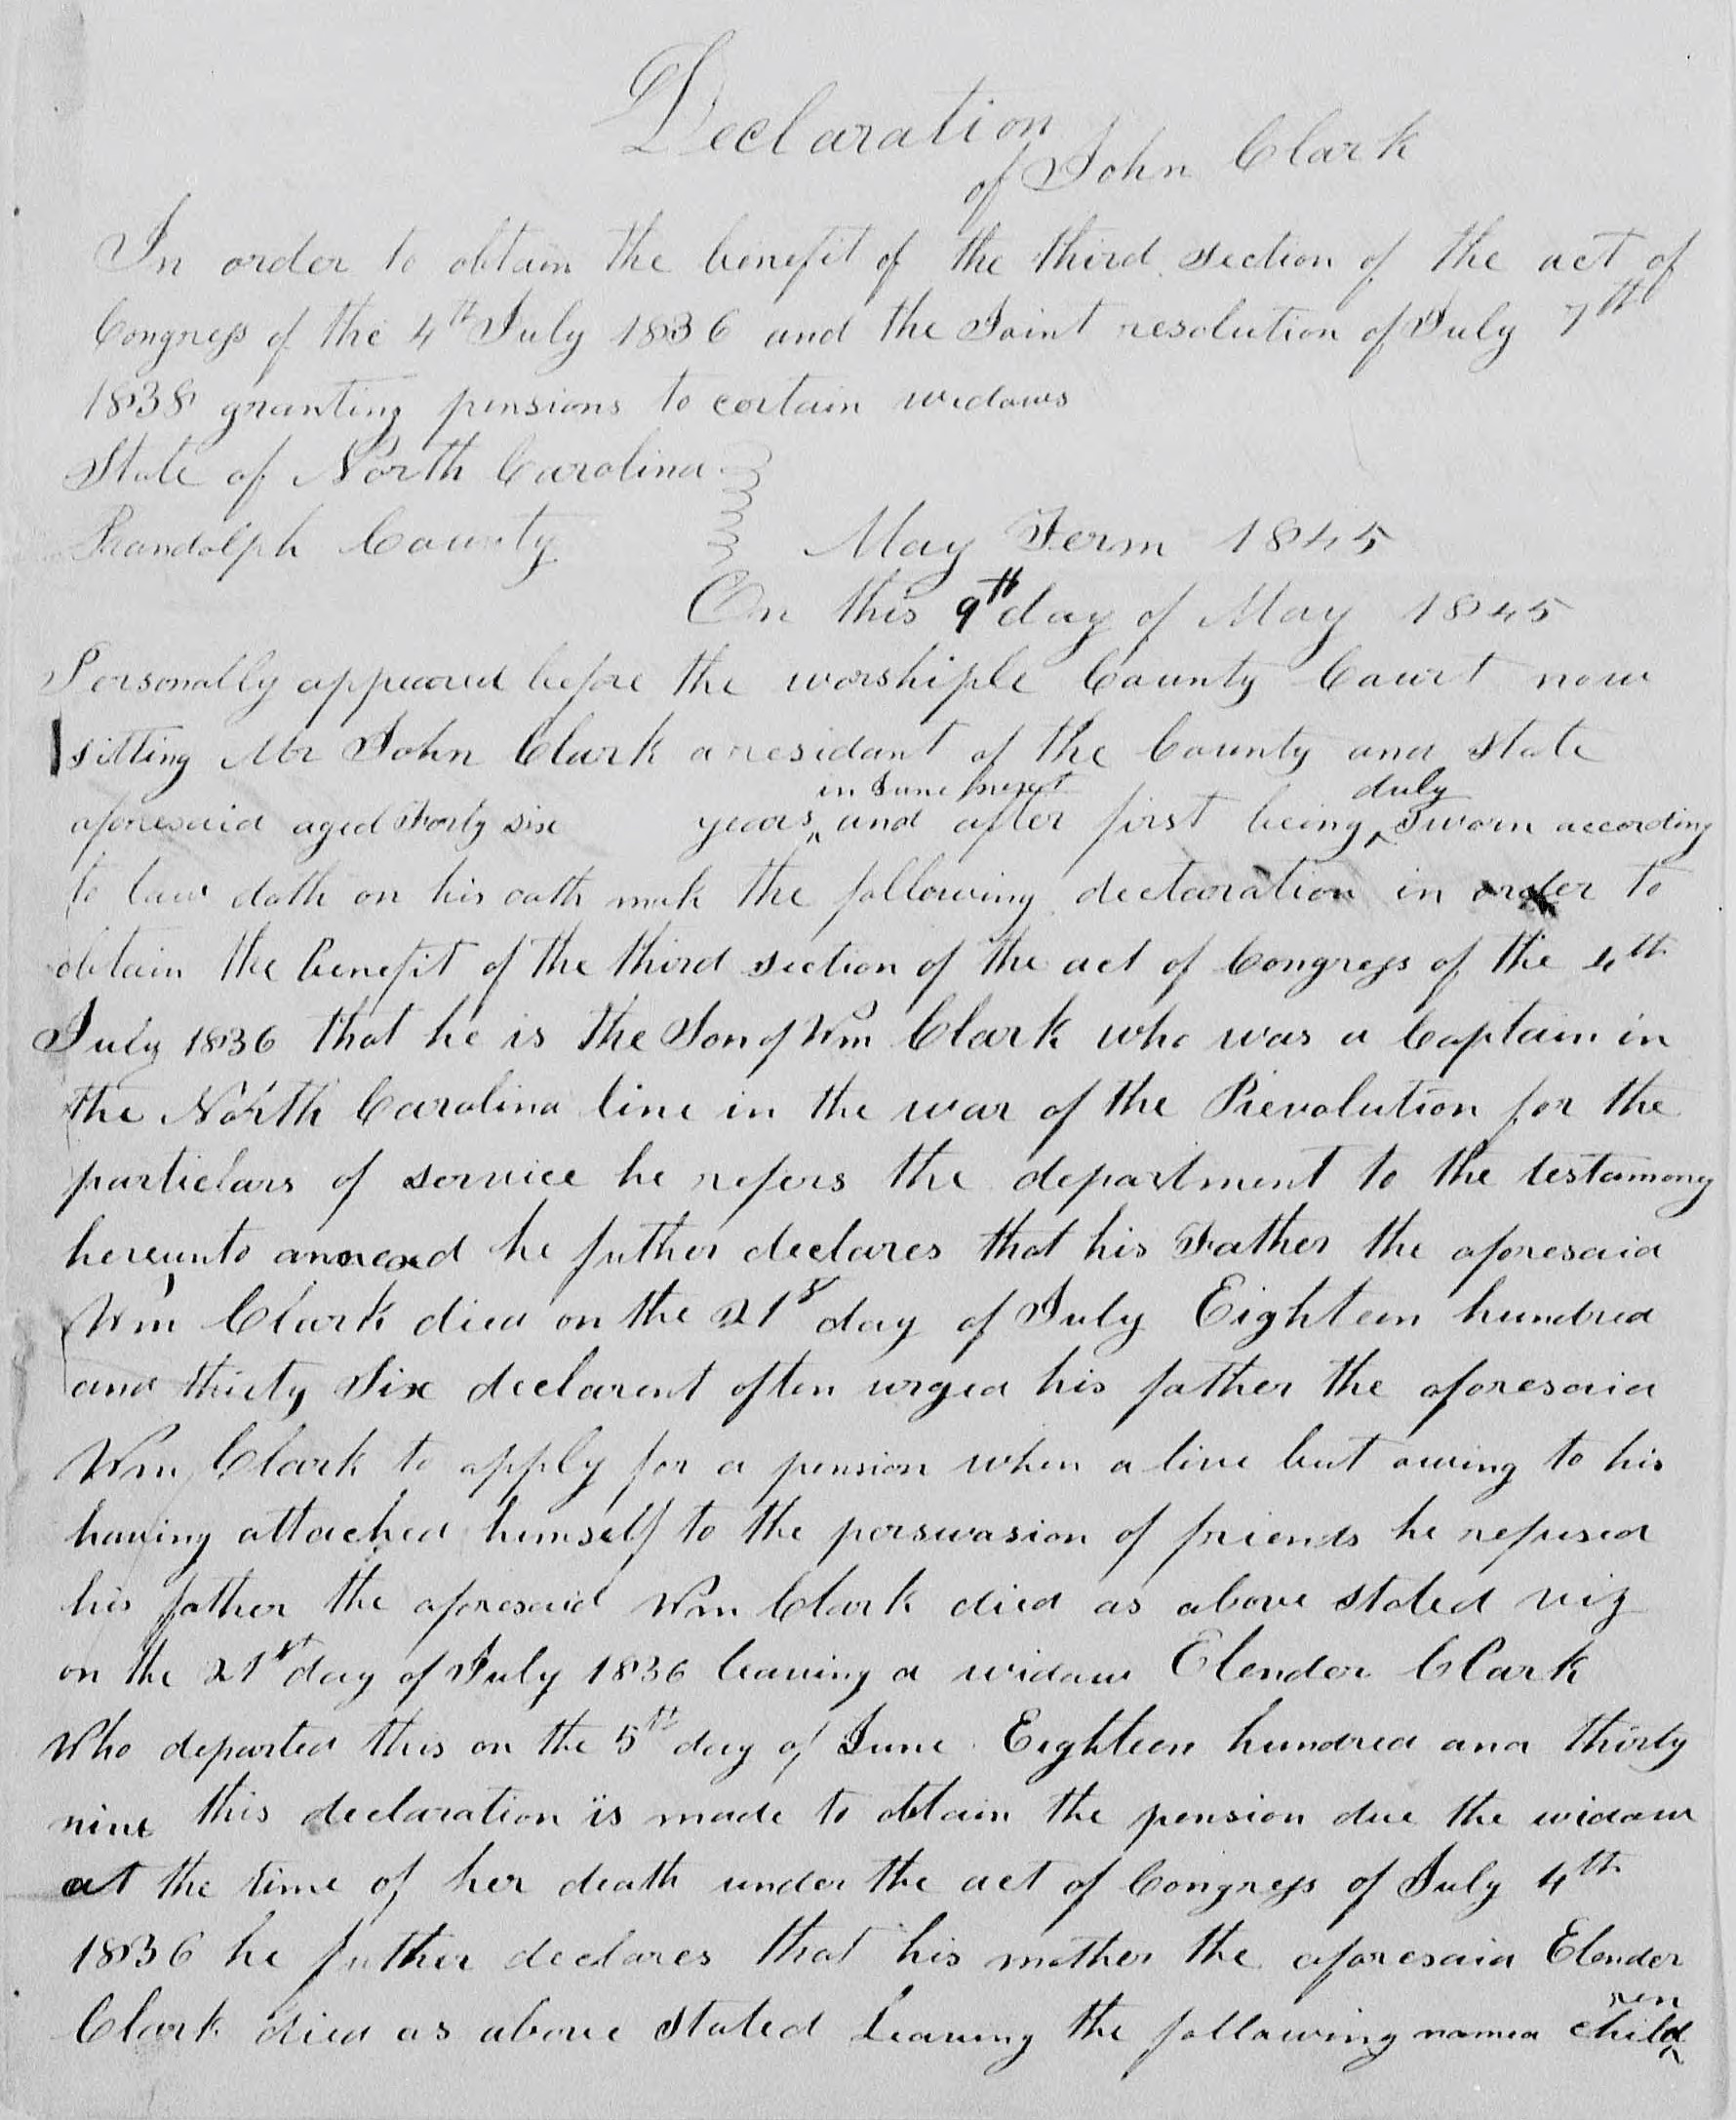 Declaration
of John Clark
In order to obtain the benefit of the third section of the act of
Congress of the 4th July 1836 and the Joint resolution of July 7th
1838 granting pensions to certain widows
State of North Carolina
Randolph County
May Term 1845
On this 9th day of May 1845
Personally appeared before the worshiple County Court now
sitting Mr John Clark a resident of the County and State
in June next duly
aforesaid aged Forty six years ^ and after first being ^ Sworn according
to law doth on his oath mak the following declaration in order to
obtain the benefit of the third section of the act of Congress of the 4th
July 1836 that he is the Son of Wm Clark who was a Captain in
the North Carolina line in the war of the Revolution for the
particlars of service he refers the department to the testamony
hereunto annexed he futher declares that his Father the aforesaid
Wm Clark died on the 21st day of July Eighteen hundred
and thirty Six declarent often urged his father the aforesaid
Wm Clark to apply for a pension when a live but owing to his
having attached himself to the perswasion of friends he refused
his father the aforesaid Wm Clark died as above stated viz
on the 21st day of July 1836 leaving a widow Elender Clark
Who departed this on the 5th day of June Eighteen hundred and thirty
nine this declaration is made to obtain the pension due the widow
at the time of her death under the act of Congress of July 4th
1836 he futher declares that his mother the aforesaid Elender
ren
Clark died as above stated Leaving the following named child ^